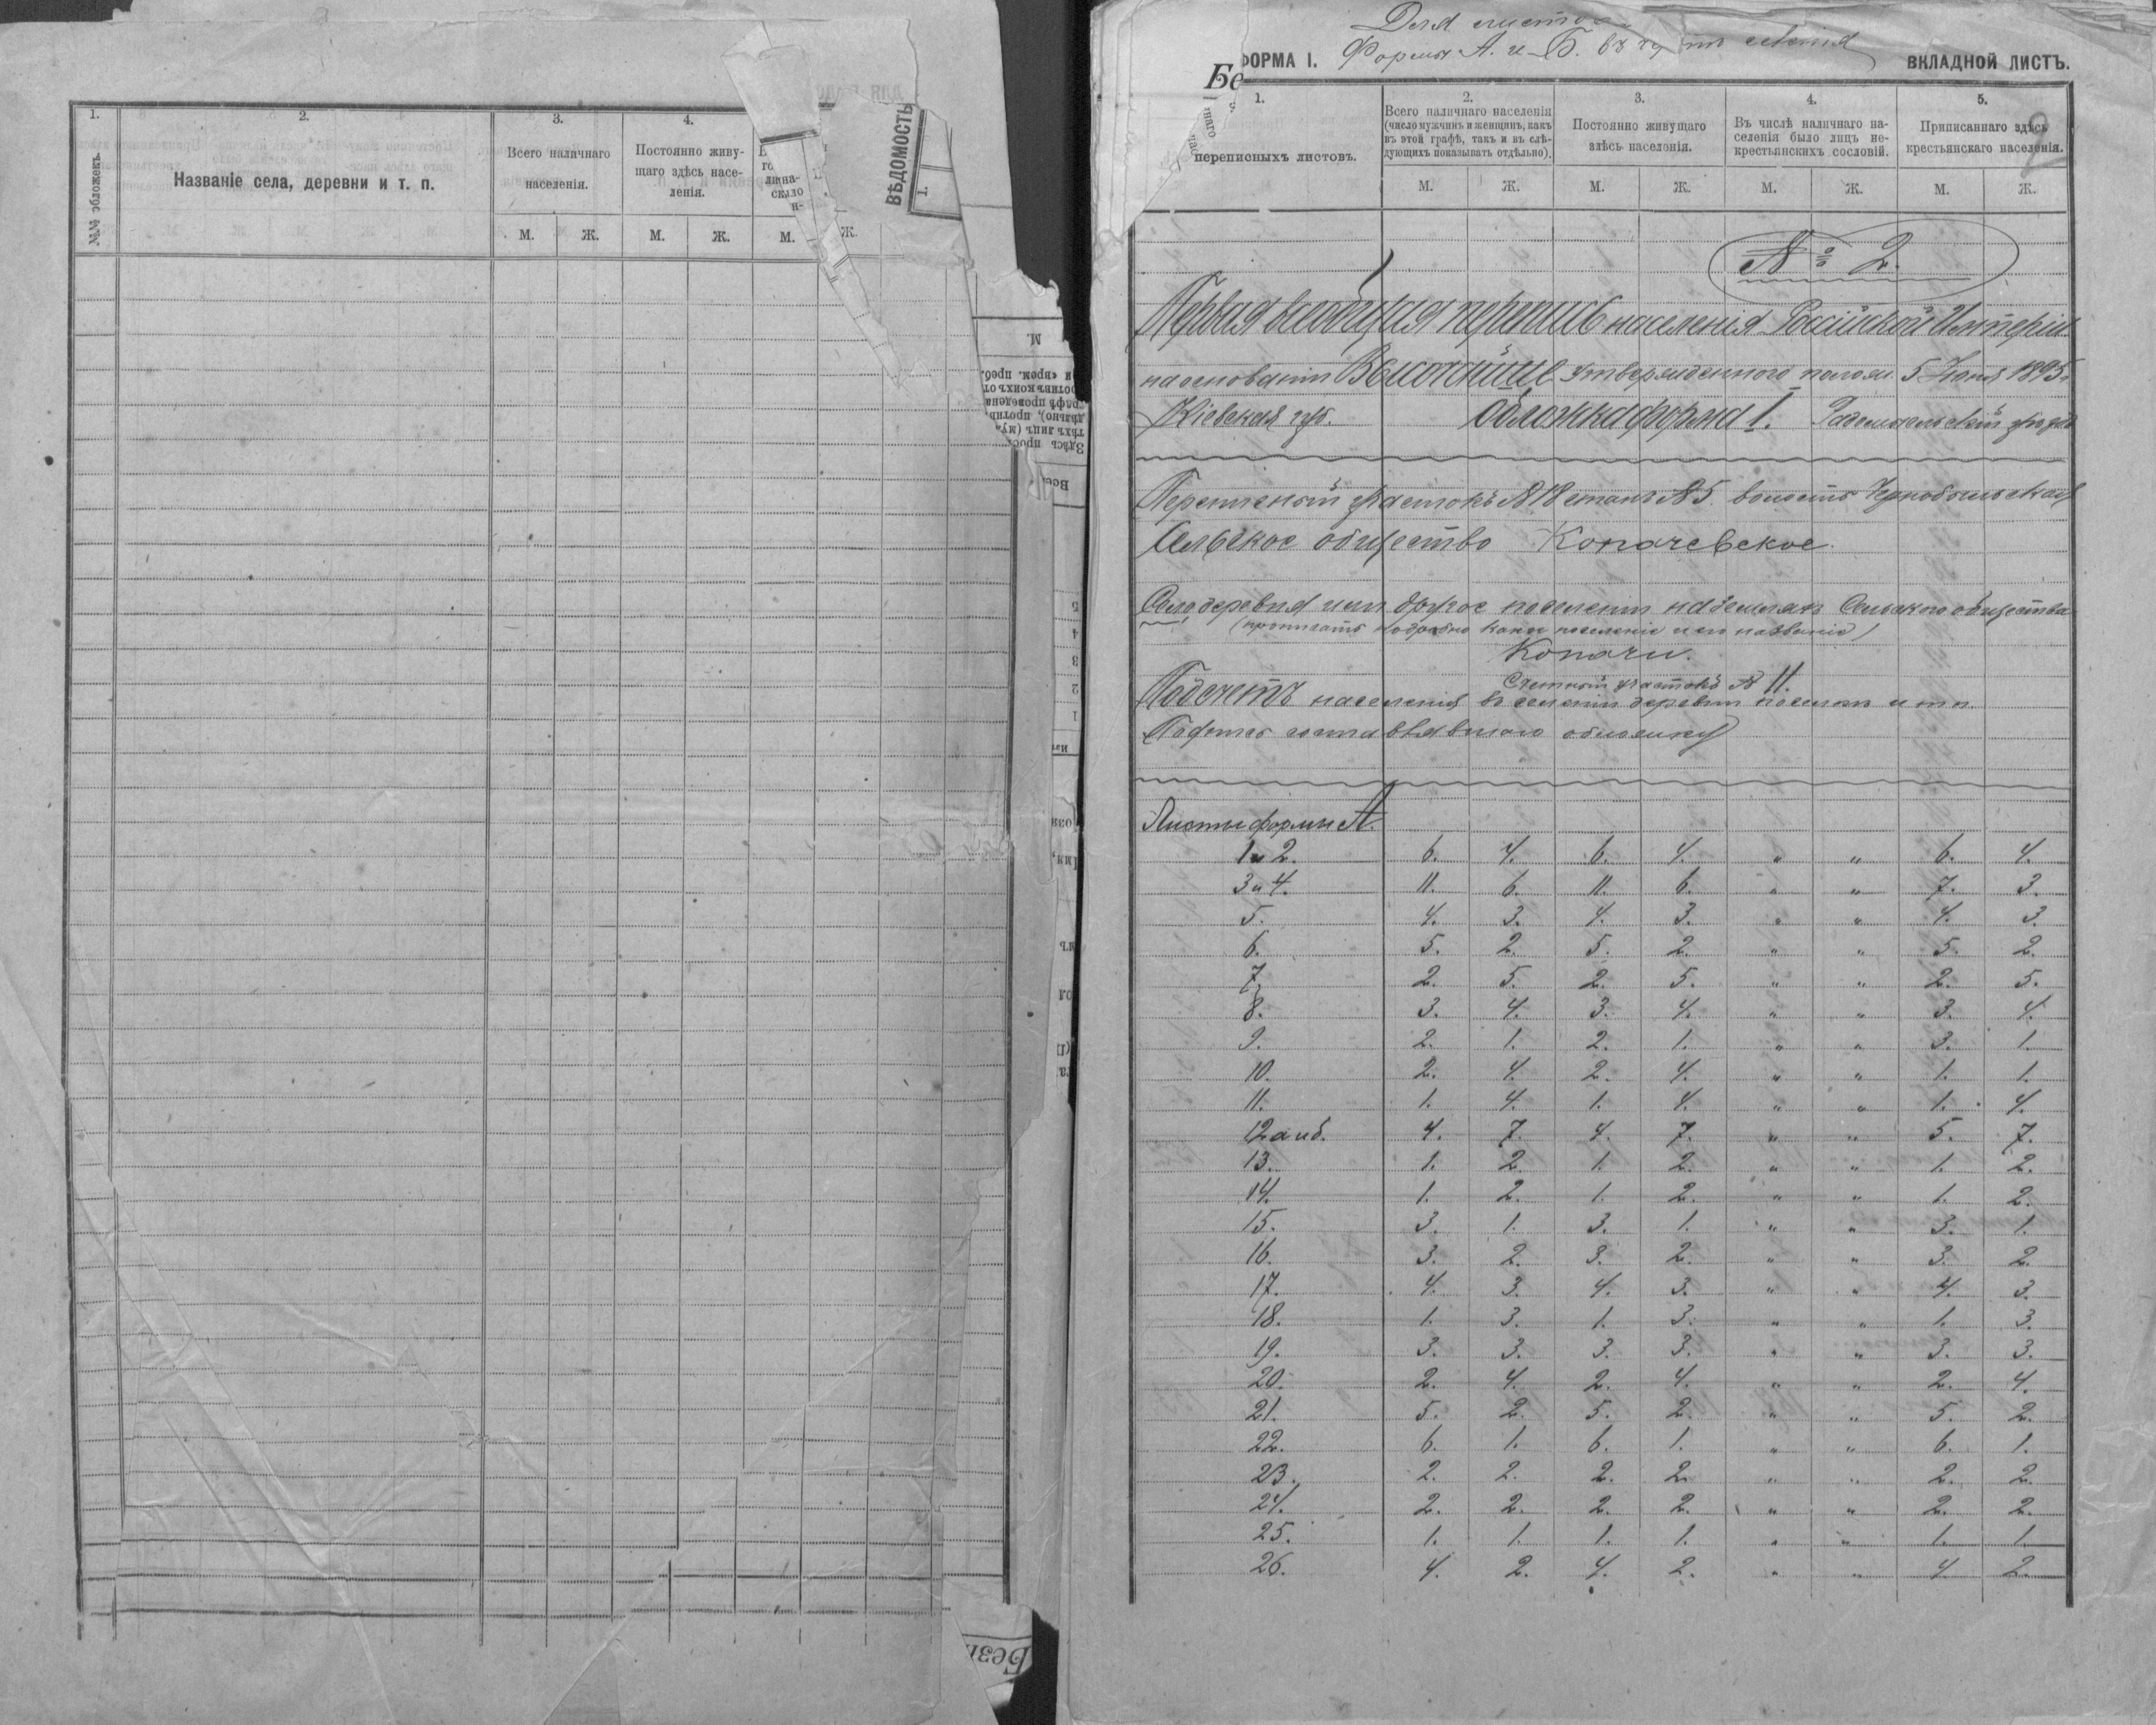 1.
2.
3.
4.
№№ обложекъ.
Названіе села, деревни и т. п.
Всего наличнаго
населенія.
Постоянно живу-
щаго здѣсь насе-
ленія.
М.
Ж.
М.
Ж.
М.
Ж.
ВѢДОМОСТЬ
1.
Для листо
ФОРМА I.
Форма А. и Б. въ
ВКЛАДНОЙ ЛИСТЪ.
Бе
1.
2.
3.
4.
5.
2
переписныхъ листовъ.
Всего наличнаго населенія
(число мужчинъ и женщинъ, какъ
въ этой графѣ, такъ и въ слѣ-
дующихъ показывать отдѣльно).
Постоянно живущаго
здѣсь населенія.
Въ числѣ наличнаго на-
селенія было лицъ не-
крестьянскихъ сословій.
Приписаннаго здѣсь
крестьянскаго населенія.
М. Ж. М. Ж. М. Ж. М. Ж.
№ 2.
Первая всеобщая перепись населенія Россійской Имперіи
на основаніи Высочайше Утвержденного полож. 5 Іюня 1895 г.
Кіевская губ. Обложка форма I. Радомысльскій уѣздъ
Переписный участокъ № 18 станъ № 5. волость Чернобыльская
Сельское общество Копачевское.
Село, деревня или другое поселеніе на земляхъ Сельского общества
(прописать подробно какое поселеніе и его названіе)
Копачи.
Счетный участокъ № 11.
Подсчетъ населенія въ селеніи деревни поселкѣ и т. п.
обложку
Листы формы А.
1 и 2. 6. 4. 6. 4. " " 6. 4.
3 и 4. 11. 6. 11. 6. " " 7. 3.
5. 4. 3. 4. 3. " " 4. 3.
6. 5. 2. 5. 2. " " 5. 2.
7. 2. 5. 2. 5. " " 2. 5.
8. 3. 4. 3. 4. " " 3. 4.
9. 2. 1. 2. 1. " " 3. 1.
10. 2. 4. 2. 4. " " 1. 1.
11. 1. 4. 1. 4. " " 1. 4.
12 а и б. 4. 7. 4. 7. " " 5. 7.
13. 1. 2. 1. 2. " " 1. 2.
14. 1. 2. 1. 2. " " 1. 2.
15. 3. 1. 3. 1. " " 3. 1.
16. 3. 2. 3. 2. " " 3. 2.
17. 4. 3. 4. 3. " " 4. 3.
18. 1. 3. 1. 3. " " 1. 3.
19. 3. 3. 3. 3. " " 3. 3.
20. 2. 4. 2. 4. " " 2. 4.
21. 5. 2. 5. 2. " " 5. 2.
22. 6. 1. 6. 1. " " 6. 1.
23. 2. 2. 2. 2. " " 2. 2.
24. 2. 2. 2. 2. " " 2. 2.
25. 1. 1. 1. 1. " " 1. 1.
26. 4. 2. 4. 2. " " 4. 2.